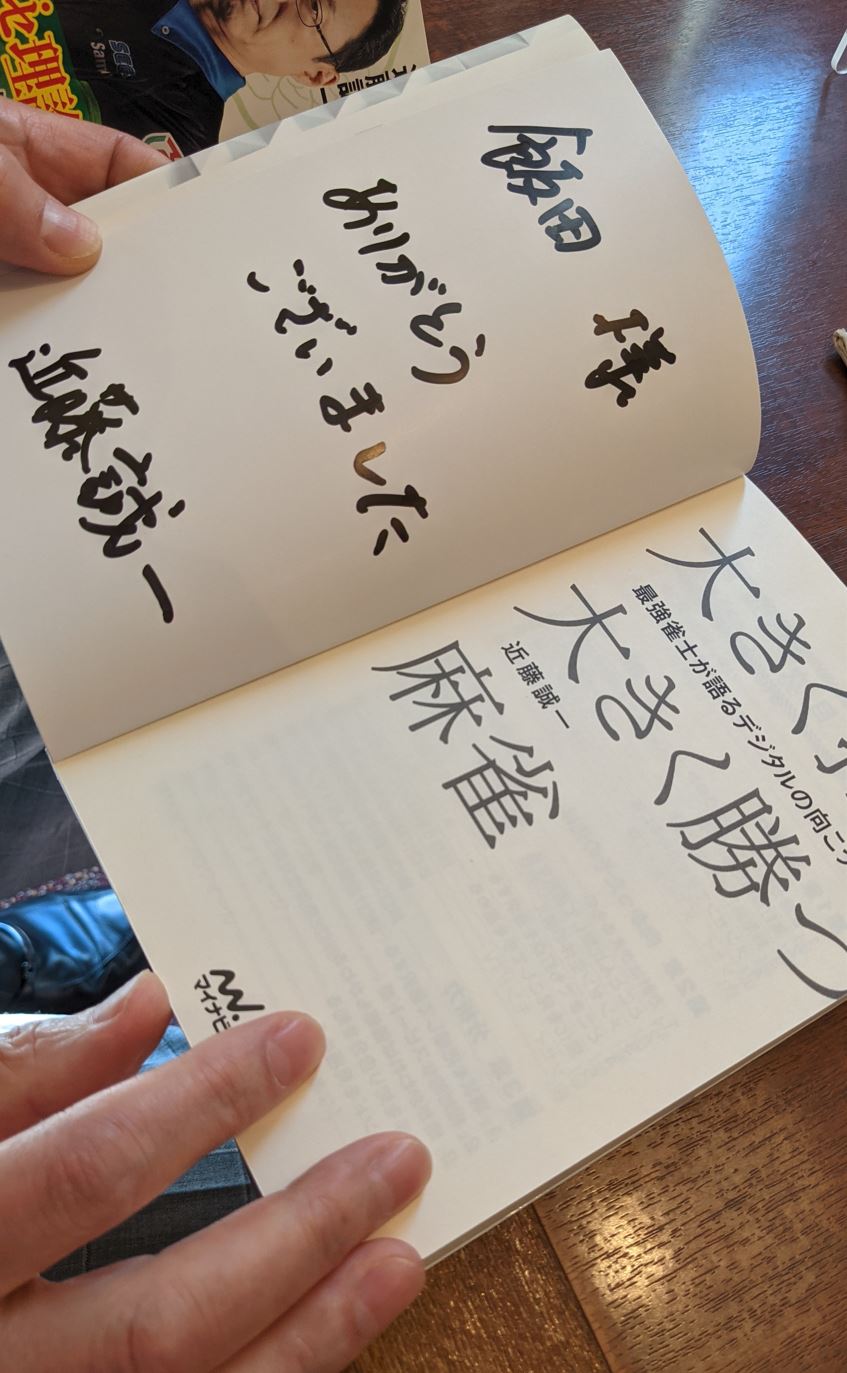 飯田
様
ありがとう
ございました
近藤誠一
大きく
最強雀士が語るデジタルの向こう
大きく勝つ
近藤誠一
麻雀
マイナビ